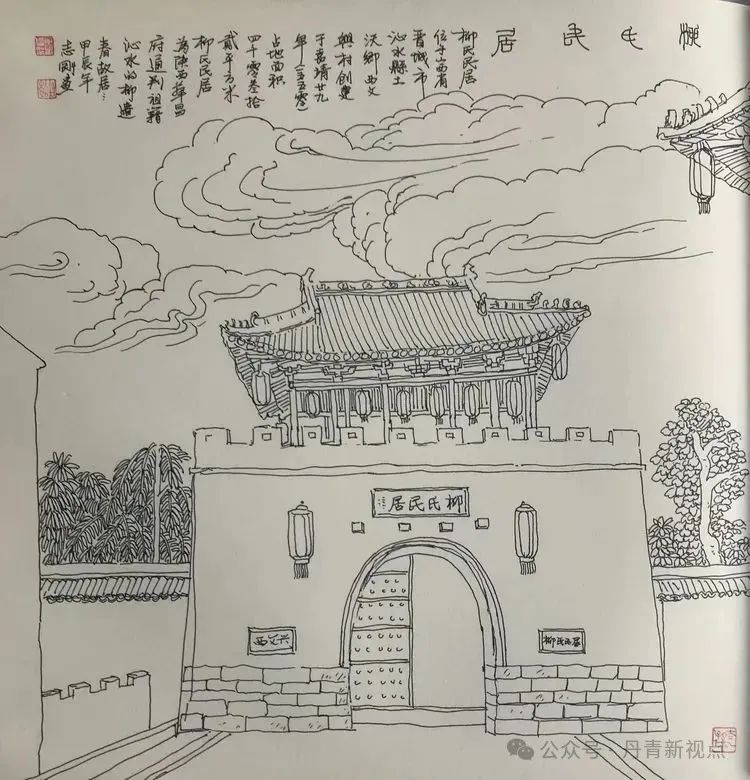 柳氏民居
柳氏民居
位于山西省
晋城市
沁水縣土
沃鄉西文
興村創建
于嘉靖廿九
年(一五五零)
占地面积
四千零叁拾
貳平方米
柳氏民居
為陝西鞏昌
府通判祖籍
沁水的柳遇
春故居:
甲辰年
志剛畫
柳氏民居
西文兴
柳氏民居
公众号·丹青新视点